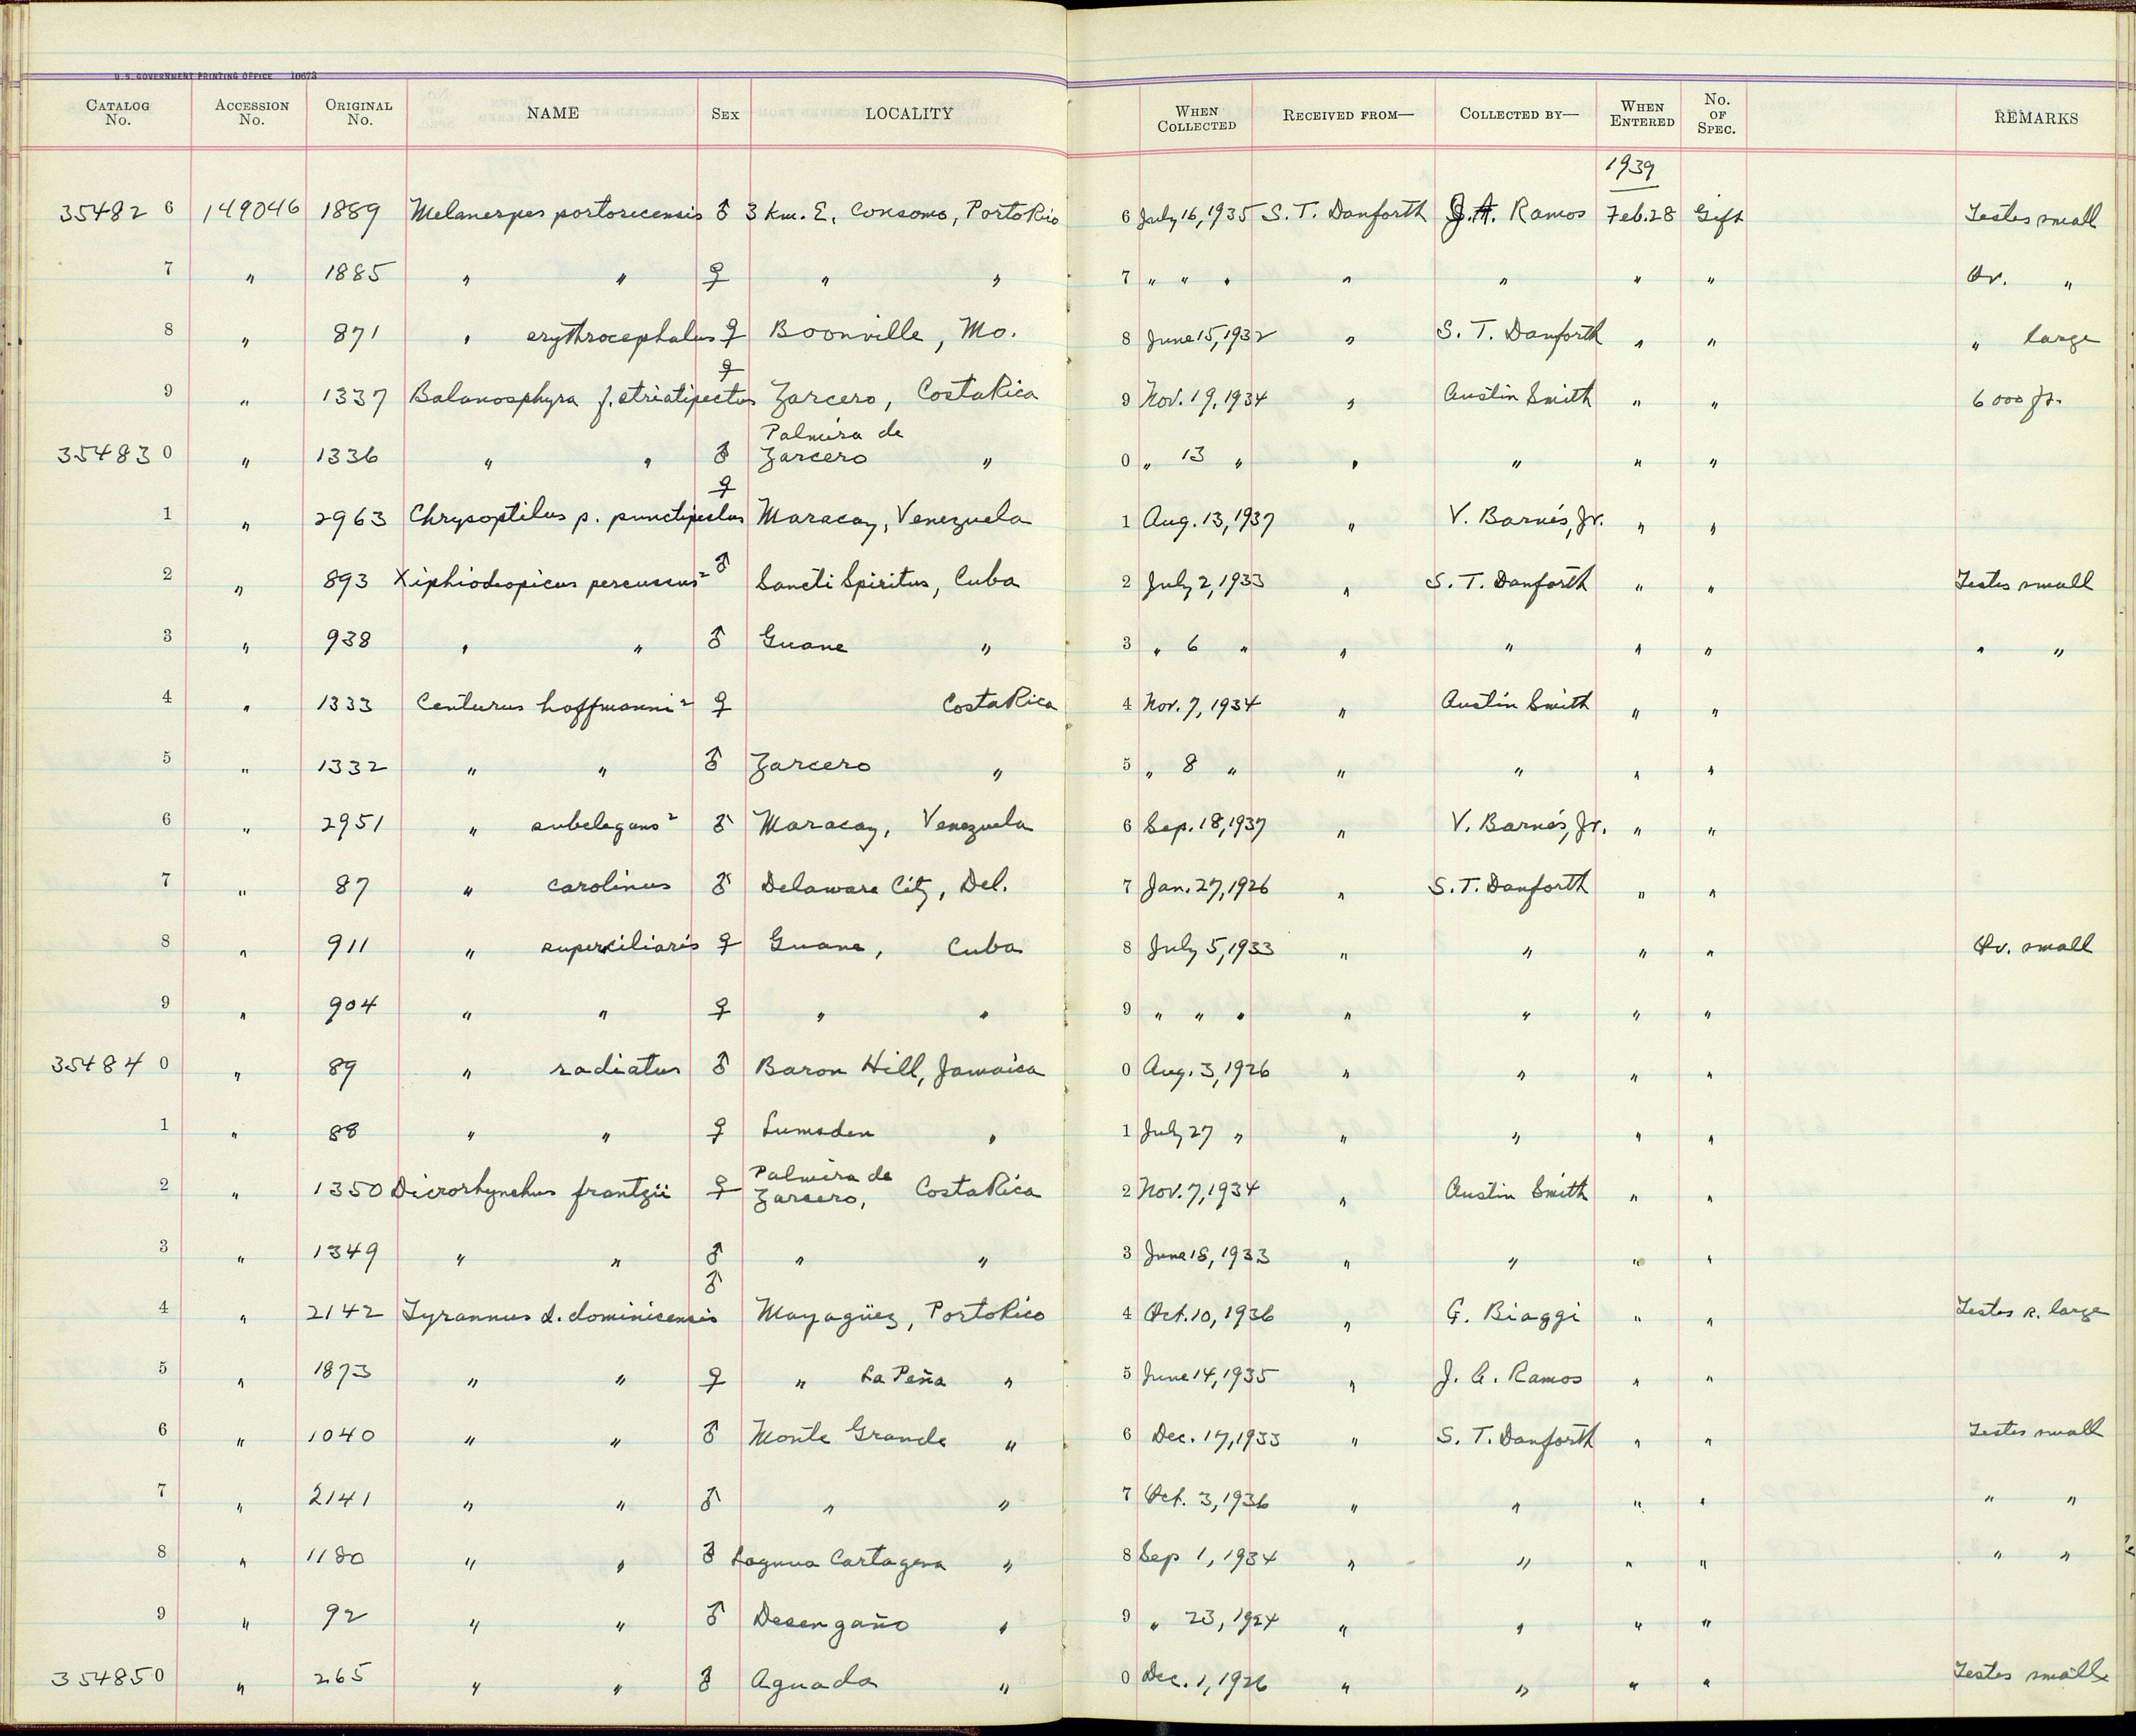 U.S. GOVERNMENT PRINTING OFFICE 10673
CATALOG No. ACCESSION No. ORIGINAL No. NAME SEX LOCALITY WHEN COLLECTED RECEIVED FROM— COLLECTED BY— WHEN ENTERED No. OF SPEC. REMARKS
1939
35482 6 149046 1889 Melanerpes portoricensis ♂ 3 Km. E, Consomo, Porto Rico 6 July 16, 1935 S. T. Danforth J. A. Ramos Feb. 28 Gift Testes small
7 " 1885 " " ♀ " " 7 " " " " " " " Ov. "
8 " 871 " erythrocephalus ♀ Boonville, Mo. 8 June 15, 1932 " S. T. Danforth " " " large
9 " 1337 Balanosphyra f. striatipectus ♀ Zarcero, Costa Rica 9 Nov. 19, 1934 " Austin Smith " " 6000 ft.
35483 0 " 1336 " " ♂ Palmira de Zarcero " 0 " 13 " " " " "
1 " 2963 Chrysoptilus p. punctipectus ♀ Maracay, Venezuela 1 Aug. 13, 1937 " V. Barnés, Jr. " "
2 " 893 Xiphidiopicus percussus² ♂ Sancti Spiritus, Cuba 2 July 2, 1933 " S. T. Danforth " " Testes small
3 " 938 " " ♂ Guane " 3 " 6 " " " " " " "
4 " 1333 Centurus hoffmanni² ♀ Costa Rica 4 Nov. 7, 1934 " Austin Smith " "
5 " 1332 " " ♂ Zarcero " 5 " 8 " " " " "
6 " 2951 " subelegans² ♂ Maracay, Venezuela 6 Sep. 18, 1937 " V. Barnés, Jr. " "
7 " 87 " carolinus ♂ Delaware City, Del. 7 Jan. 27, 1926 " S. T. Danforth " "
8 " 911 " superciliaris ♀ Guane, Cuba 8 July 5, 1933 " " " " Ov. small
9 " 904 " " ♀ " " 9 " " " " " " "
35484 0 " 89 " radiatus ♂ Baron Hill, Jamaica 0 Aug. 3, 1926 " " " "
1 " 88 " " ♀ Lumsden " 1 July 27 " " " " "
2 " 1350 Dicrorhynchus frantzii ♀ Palmira de Zarcero, Costa Rica 2 Nov. 7, 1934 " Austin Smith " "
3 " 1349 " " ♂ " " 3 June 18, 1933 " " " "
4 " 2142 Tyrannus d. dominicensis ♂ Mayagüez, Porto Rico 4 Oct. 10, 1936 " G. Biaggi " " Testes r. large
5 " 1873 " " ♀ " La Peña " 5 June 14, 1935 " J. A. Ramos " "
6 " 1040 " " ♂ Monte Grande " 6 Dec. 17, 1933 " S. T. Danforth " " Testes small
7 " 2141 " " ♂ " " 7 Oct. 3, 1936 " " " " " "
8 " 1180 " " ♂ Laguna Cartagena " 8 Sep 1, 1934 " " " " " "
9 " 92 " " ♂ Desengaño " 9 " 23, 1924 " " " "
35485 0 " 265 " " ♂ Aguada " 0 Dec. 1, 1926 " " " " Testes small